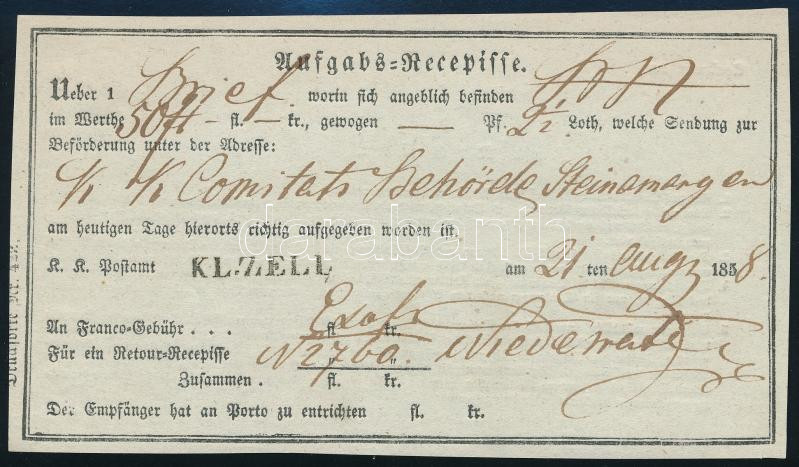 Aufgabs=Recepisse.
Ueber 1 Brief worin sich angeblich befinden
im Werthe 50 ft – fl. — kr., gewogen — Pf. 2½ Loth, welche Sendung zur
Beförderung unter der Adresse:
K K Comitats Behörde Steinamangen
am heutigen Tage hierorts richtig aufgegeben worden ist.
K. K. Postamt KL.ZELL am 21 ten Aug 1858.
An Franco-Gebühr . . . fl. kr.
Für ein Retour-Recepisse „ „
Zusammen . fl. kr.
Der Empfänger hat an Porto zu entrichten fl. kr.
Drucksorte Nr.
darabanth